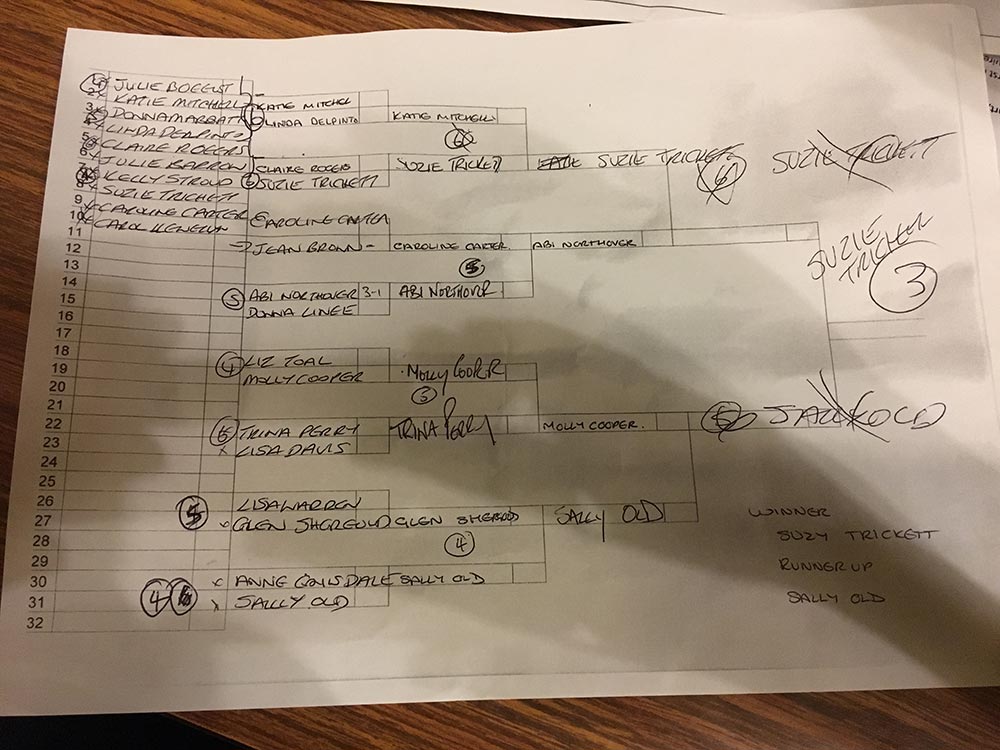 1 JULIE BOEGLST
2 KATIE MITCHELL
3 DONNA MARBATH
4 LINDA DELPINTO
5 CLAIRE ROGERS
6
7 JULIE BARRON
KELLY STROUD
8 SUZIE TRICKETT
9 CAROLINE CARTER
10 CAROL LLEWELLN
11
12
13
14
15
16
17
18
19
20
21
22
23
24
25
26
27
28
29
30
31
32
KATIE MITCHEL
LINDA DELPINTO
CLAIRE ROGERS
6 SUZIE TRICKETT
CAROLINE CARTER
JEAN BRONN
5 ABI NORTHOVER 3-1
DONNA LINEE
4 LIZ TOAL
MOLLY COOPER
5 TRINA PERRY
x LISA DAVIS
5 LISA WARREN
x GLEN SHEREOULD
x ANNE CONISDALE
4 6 x SALLY OLD
KATIE MITCHELL
6
SUZIE TRICKETT
CAROLINE CARTER.
5
ABI NORTHOVER
MOLLY COOPER
3
TRINA PERRY
GLEN SHEROD
4
SALLY OLD
SUZIE TRICKETT
6
ABI NORTHOVER
MOLLY COOPER.
SALLY OLD
SUZIE TRICKETT
SUZIE
TRICKER
3
5 SALLY OLD
WINNER
SUZY TRICKETT
RUNNER UP
SALLY OLD